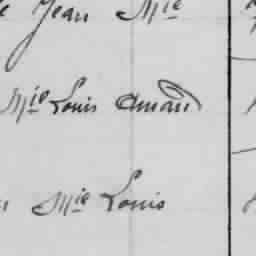 Jean Mie
Mie Louis Amand
Mie Louis